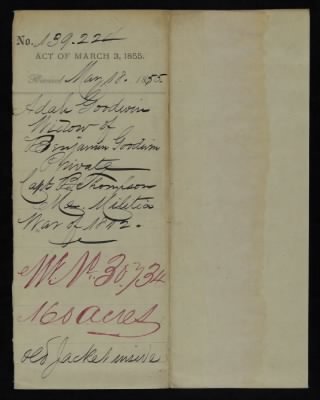 No. 139.226
ACT OF MARCH 3, 1855.
Received May 18. 1855.
Adah Goodwin
Widow of
Benjamin Goodwin
Private
Capt Thompson
Me. Militia
War of 1812.
160 acres
old Jacket inside